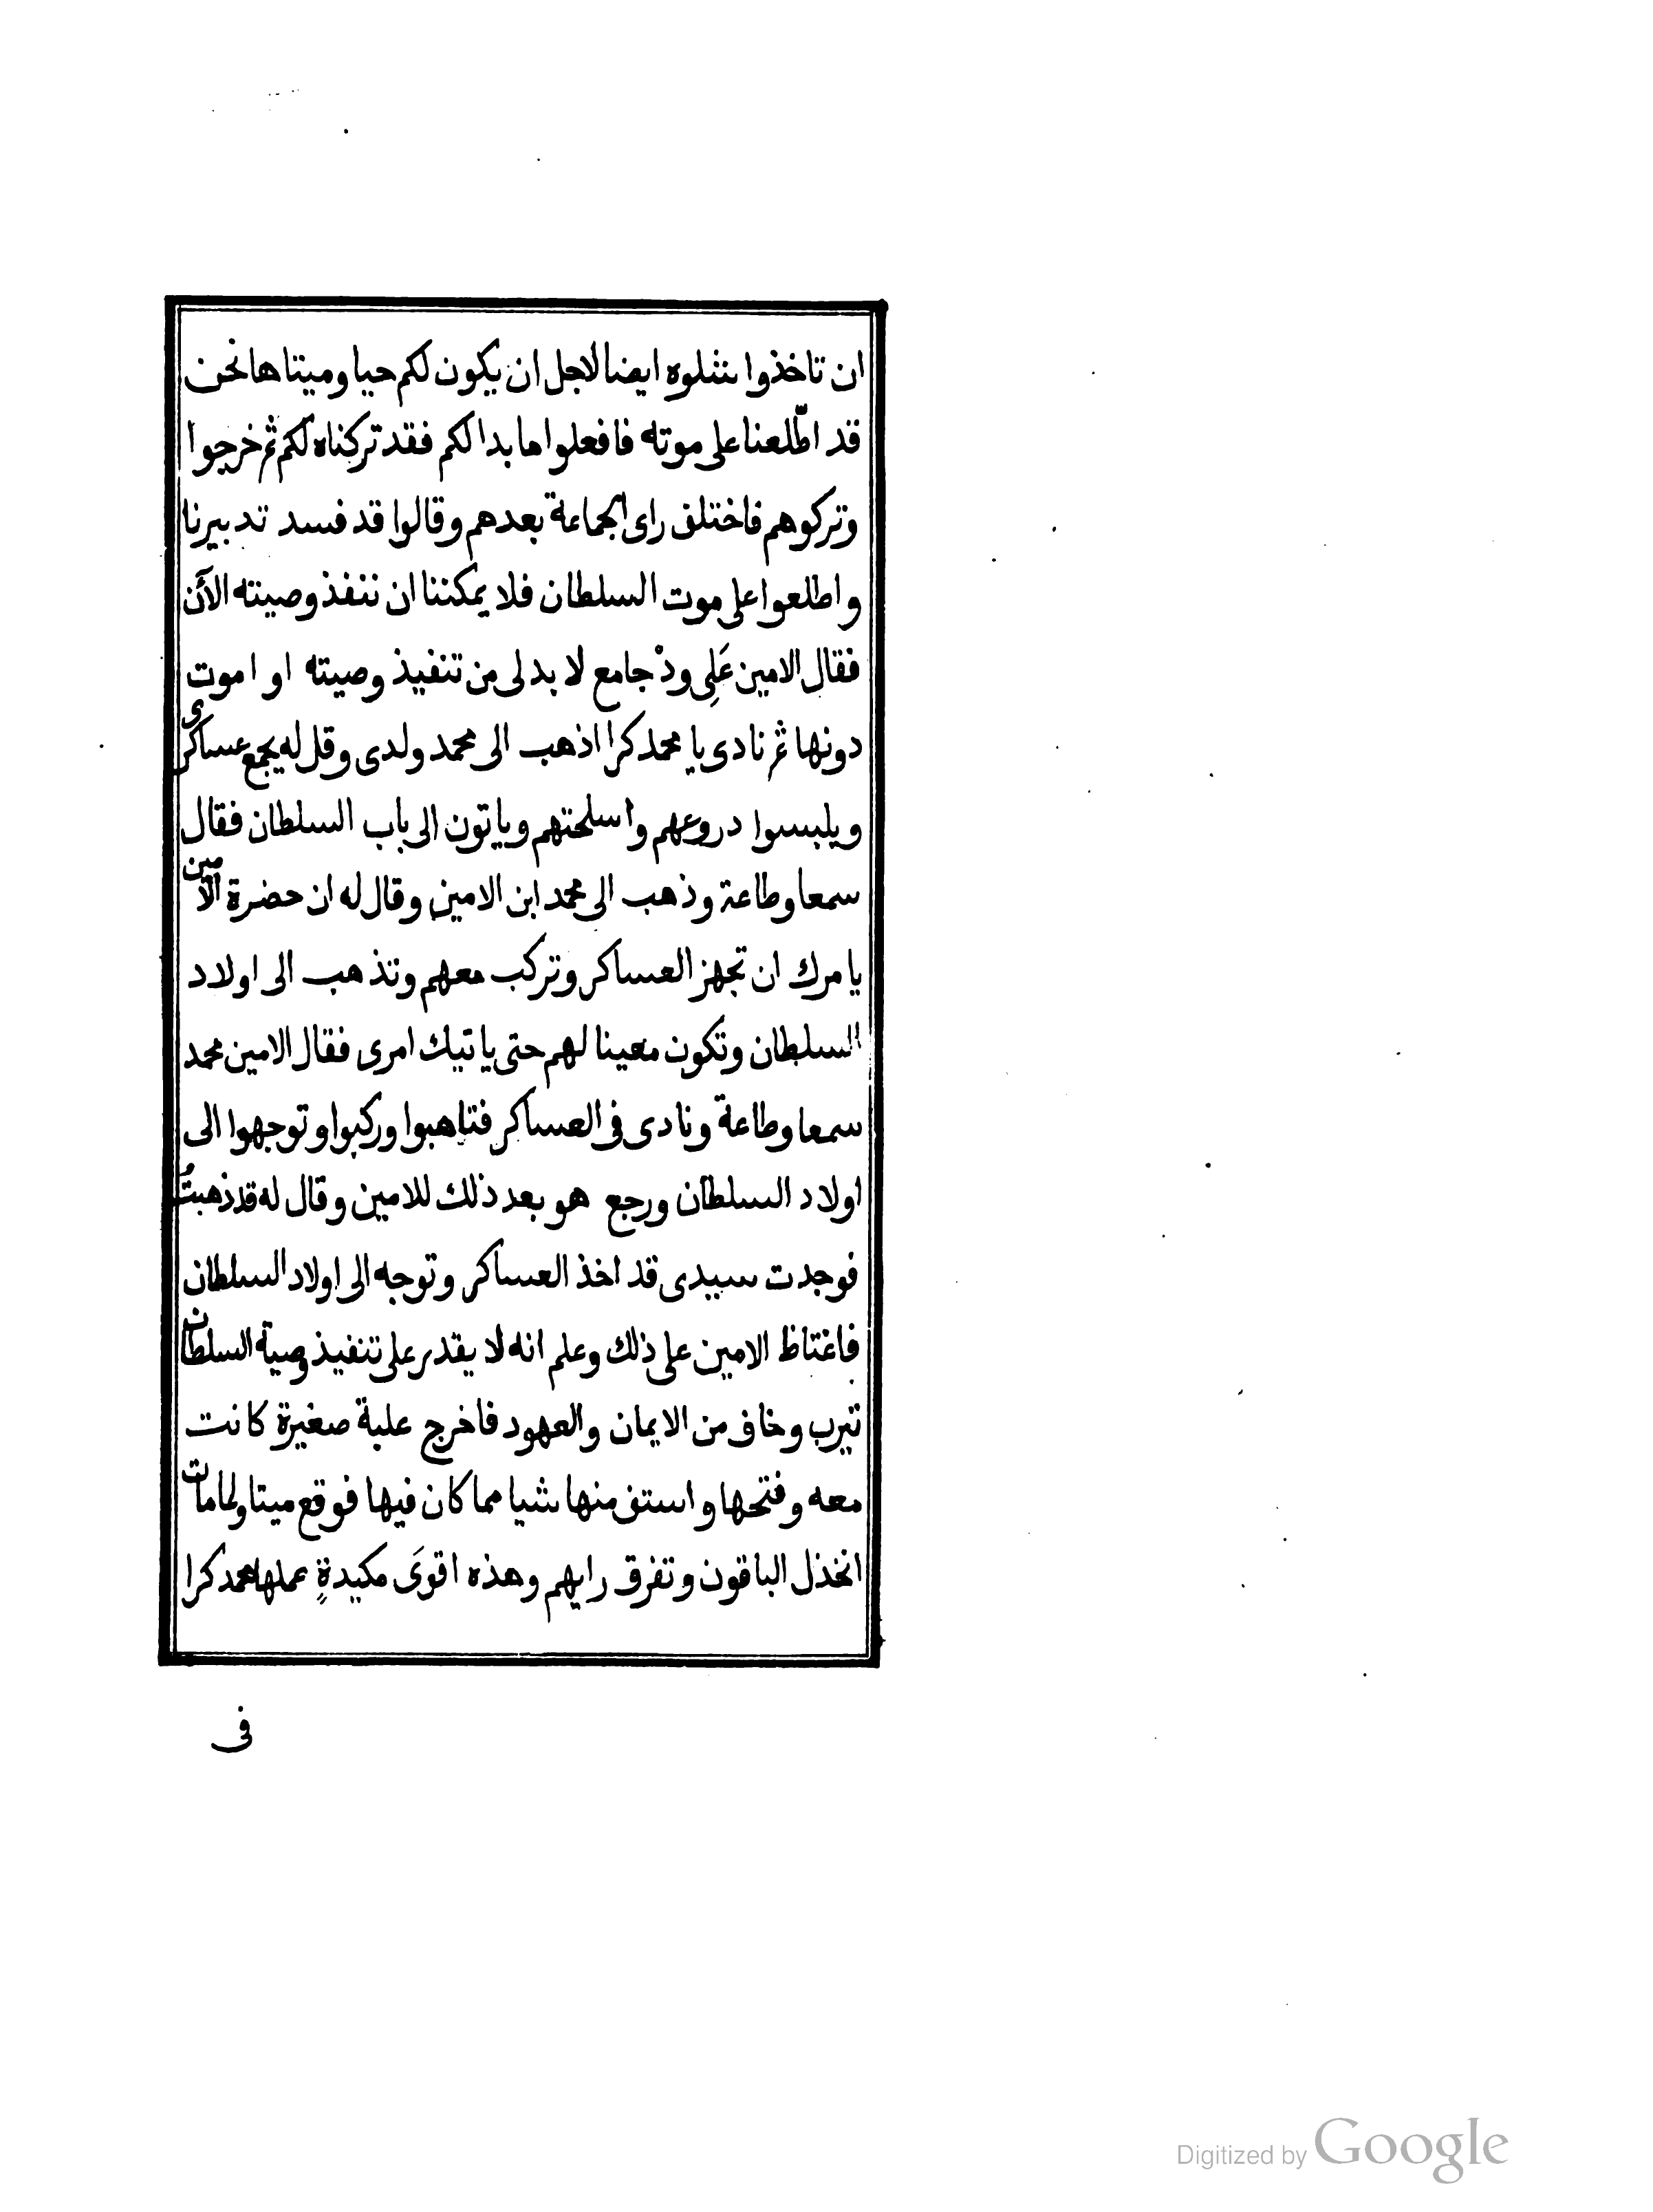 ان تاخذوا شلوه ايضا لاجل ان يكون لكم حيا وميتا ها نحن
قد اطّلعنا على موته فافعلوا ما بدا لكم فقد تركناه لكم ثم خرجوا
وتركوهم فاختلف راى الجماعة بعدهم وقالوا قد فسد تدبيرنا
واطلعوا على موت السلطان فلا يمكننا ان ننفذ وصيته الآن
فقال الامين عَلِى ودْ جامع لا بد لى من تنفيذ وصيته او اموت
دونها ثم نادى يا محمد كرا اذهب الى محمد ولدى وقل له يجمع عساكرى
ويلبسوا دروعهم واسلحتهم وياتون الى باب السلطان فقال
سمعا وطاعة وذهب الى محمد ابن الامين وقال له ان حضرة الامين
يامرك ان تجهز العساكر وتركب معهم وتذهب الى اولاد
السلطان وتكون معينا لهم حتى ياتيك امرى فقال الامين محمد
سمعا وطاعة ونادى فى العساكر فتاهبوا وركبوا وتوجهوا الى
اولاد السلطان ورجع هو بعد ذلك للامين وقال له قد ذهبتُ
فوجدت سيدى قد اخذ العساكر وتوجه الى اولاد السلطان
فاغتاظ الامين على ذلك وعلم انه لا يقدر على تنفيذ وصية السلطان
تيرب وخاف من الايمان والعهود فاخرج علبة صغيرة كانت
معه وفتحها واستف منها شيا مما كان فيها فوقع ميتا ولما مات
انخذل الباقون وتفرق رايهم وهذه اقوَى مكيدةٍ عملها محمد كرا
فى
Digitized by Google